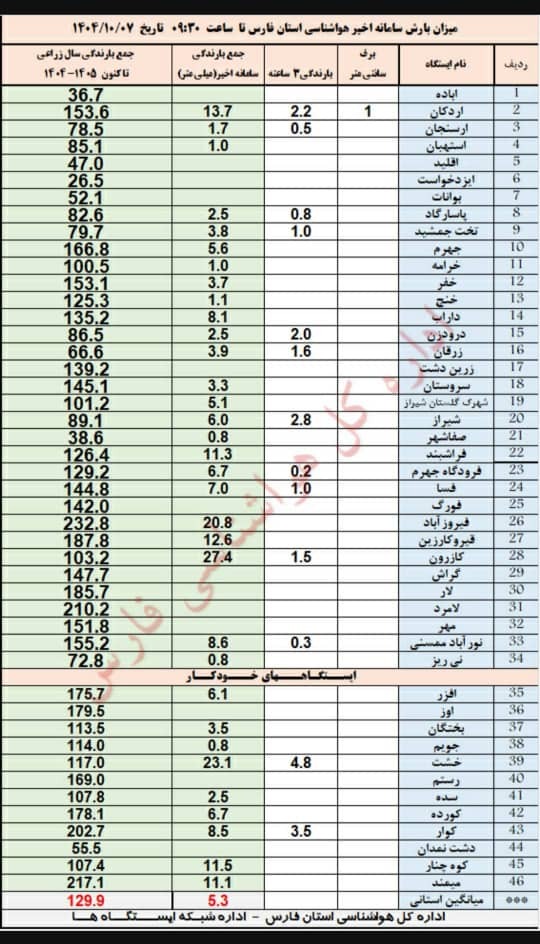 میزان بارش سامانه اخیر هواشناسی استان فارس تا ساعت ۰۹:۳۰ تاریخ ۱۴۰۴/۱۰/۰۷
ردیف نام ایستگاه برف سانتی متر بارندگی ۳ ساعته جمع بارندگی سامانه اخیر(میلی متر) جمع بارندگی سال زراعی تاکنون ۱۴۰۵-۱۴۰۴
1 آباده 36.7
2 اردکان 1 2.2 13.7 153.6
3 ارسنجان 0.5 1.7 78.5
4 استهبان 1.0 85.1
5 اقلید 47.0
6 ایزدخواست 26.5
7 بوانات 52.1
8 پاسارگاد 0.8 2.5 82.6
9 تخت جمشید 1.0 3.8 79.7
10 جهرم 5.6 166.8
11 خرامه 1.0 100.5
12 خفر 3.7 153.1
13 خنج 1.1 125.3
14 داراب 8.1 135.2
15 درودزن 2.0 2.5 86.5
16 زرقان 1.6 3.9 66.6
17 زرین دشت 139.2
18 سروستان 3.3 145.1
19 شهرک گلستان شیراز 5.1 101.2
20 شیراز 2.8 6.0 89.1
21 صفاشهر 0.8 38.6
22 فراشبند 11.3 126.4
23 فرودگاه جهرم 0.2 6.7 129.2
24 فسا 1.0 7.0 144.8
25 فورگ 142.0
26 فیروزآباد 20.8 232.8
27 قیروکارزین 12.6 187.8
28 کازرون 1.5 27.4 103.2
29 گراش 147.7
30 لار 185.7
31 لامرد 210.2
32 مهر 151.8
33 نورآباد ممسنی 0.3 8.6 155.2
34 نی ریز 0.8 72.8
ایستگاههای خودکار
35 افزر 6.1 175.7
36 اوز 179.5
37 بختگان 3.5 113.5
38 جویم 0.8 114.0
39 خشت 4.8 23.1 117.0
40 رستم 169.0
41 سده 2.5 107.8
42 کورده 6.7 178.1
43 کوار 3.5 8.5 202.7
44 دشت نمدان 55.5
45 کوه چنار 11.5 107.4
46 میمند 11.1 217.1
*** میانگین استانی 5.3 129.9
اداره کل هواشناسی استان فارس - اداره شبکه ایستگاه ها
اداره کل هواشناسی فارس